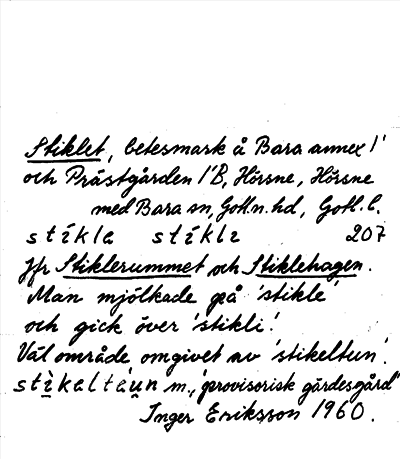 Stiklet, betesmark å Bara annex 1'
och Prästgården 1'B, Hörsne, Hörsne
med Bara sn, Gotl.n.hd, Gotl.l.
stíkla stíklı 207
Jfr Stiklerummet och Stiklehagen.
Man mjölkade på 'stikle'
och gick över 'stikli'.
Väl område omgivet av 'stikeltun'.
stìkalta᷄u̯n m., 'provisorisk gärdesgård'
Inger Eriksson 1960.